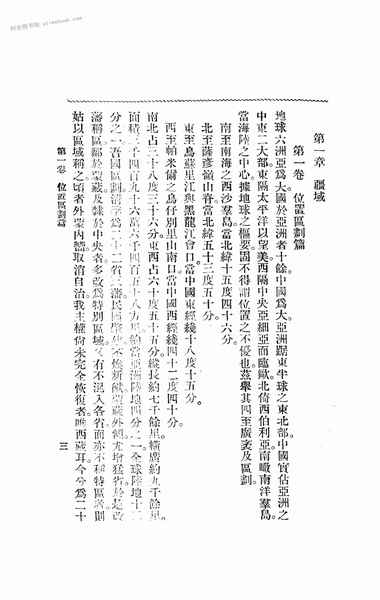 第一章 疆域
第一卷 位置區劃篇
地球六洲亞爲大國於亞洲者十餘中國爲大亞洲踞東半球之東北部中國實佔亞洲之
中東二大部東隔太平洋以望美西隔中央亞細亞而臨歐北倚西伯利亞南瞰南洋羣島
當海陸之中心據地球之樞要固不得謂位置之不優也茲舉其四至廣袤及區劃
南至南海之西沙羣島當北緯十五度四十六分
北至薩彥嶺山脊當北緯五十三度五十分
東至烏蘇里江與黑龍江會口當中國東經綫十八度十五分
西至帕米爾之烏仔別里山南口當中國西經綫四十二度四十分
南北占三十八度三十六分東西占六十度五十五分縱長約七千餘里橫廣約九千餘里
面積三千四百九十六萬六千四百五十八方里約當亞洲陸地四分之一全球陸地十二
分之一吾國區劃清季爲二十二省三藩民國
藩稱區部於蒙藏及隸於中央者多改爲特別區域又有不混入各省而亦不稱特區者則
姑以區域稱之頃者外蒙內嚮取消自治我主權尙未完全恢復者唯西藏耳今分爲二十
第一卷 位置區劃篇
三